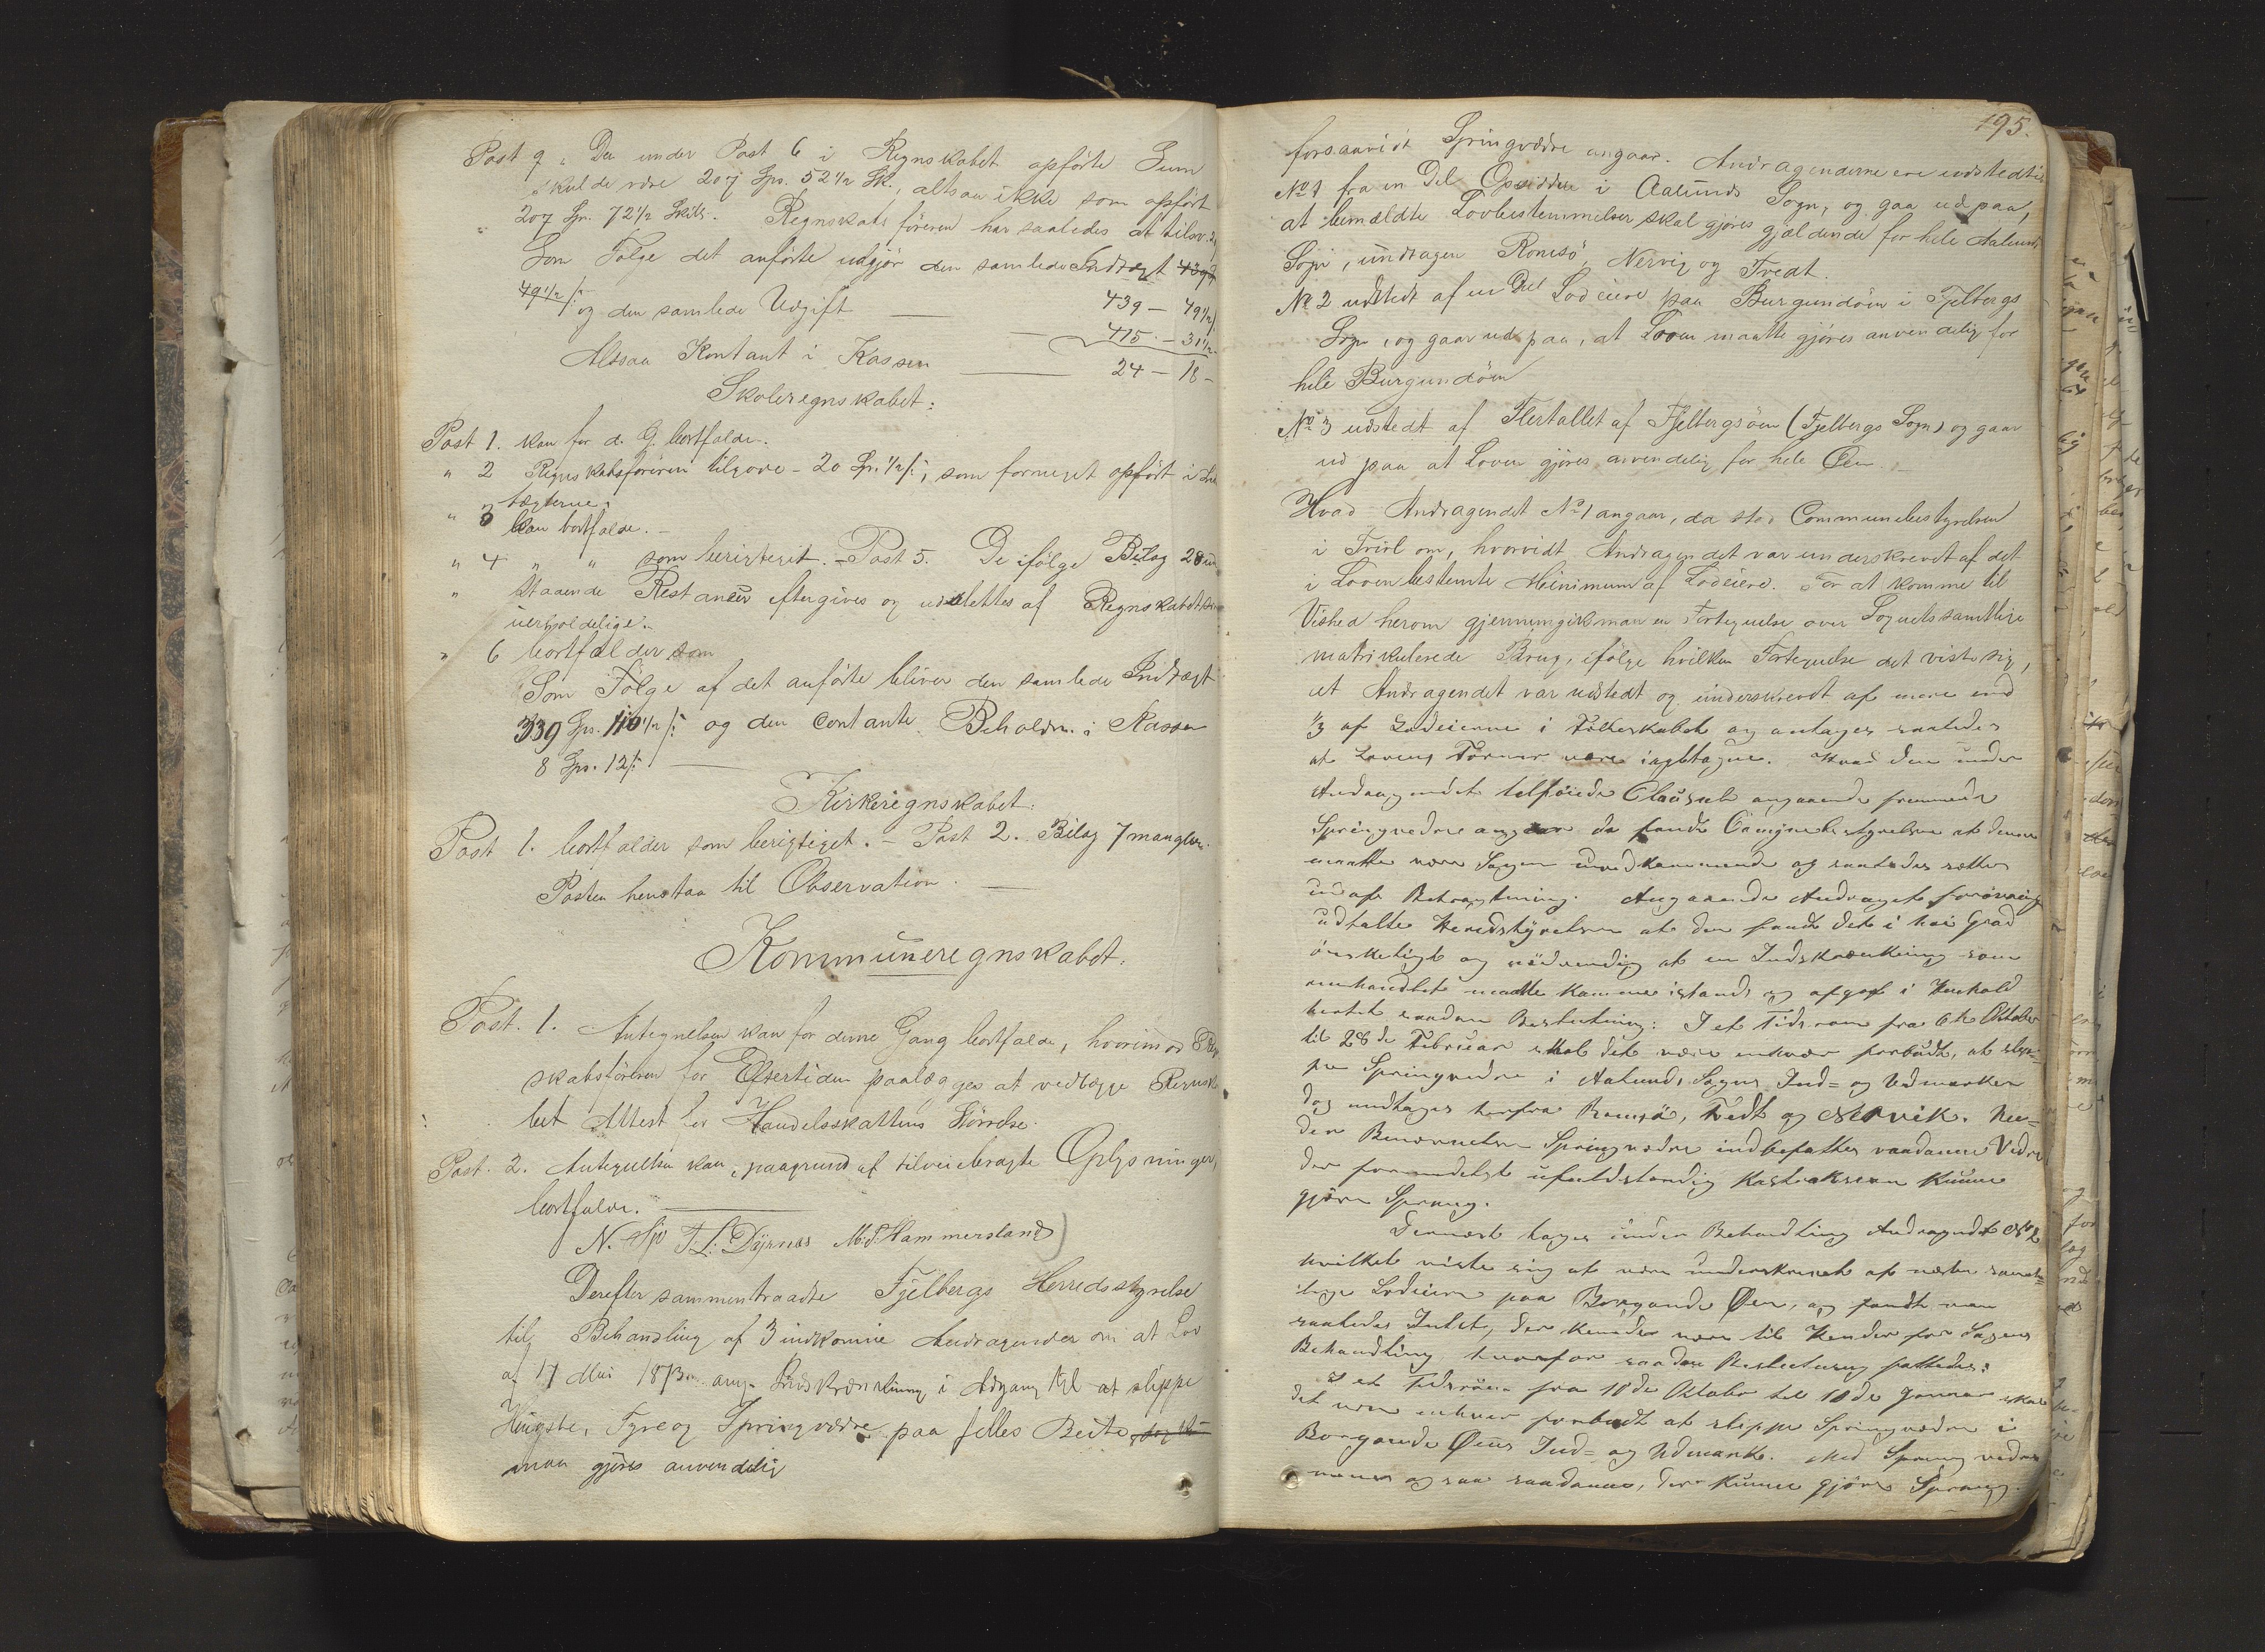 Post 9. De under Post 6 i Regnskabet opførte Sum
skulde være 207 Spr. 52 1/2 Sk., altsaa ikke som opført
207 Sp. 72 1/2 Skill. Regnskabsføreren har saaledes at tilsv.
Som Følge det anførte udgjør den samlede Indtægt
49 1/2 ß 439 - 49 1/2
og den samlede Udgift 415 - 31 1/2
Altsaa Kontant i Kassen 24 - 18 -
Skoleregnskabet:
Post 1. kan for d. G. bortfalde.
" 2 Regnskabsføreren tilgode - 20 Sp. 1/2 ß, som formeget opført i Ind
tægterne.
" 3 kan bortfalde. -
" 4 " " som berigtiget. - Post 5. De ifølge Bilag 28 ude
" staaende Restancer eftergives og udslettes af Regnskabet som
uerholdelige.
" 6 bortfalder som
Som Følge af det anførte bliver den samlede Indtægt
339 Spr. 110 1/2 ß og den contante Beholdn. i Kassen
8 Spr. 12 ß
Kirkeregnskabet:
Post 1. bortfalder som berigtiget. - Post 2. Bilag 7 mangler.
Posten henstaa til Observation.
Kommuneregnskabet.
Post. 1. Antegnelsen kan for denne Gang bortfalde, hvorimod Regn
skabsføreren for Eftertiden paalægges at vedlægge Regnska
bet Attest for Handelsskattens Størrelse.
Post. 2. Antegnelsen kan, paagrund af tilveiebragte Oplysninger,
bortfalde.
N. Sjo T. L. Døsnes M. S. Hammersland
Derefter sammentraadte Fjelbergs Herredsstyrelse
til Behandling af 3 indkomne Andragender om at Lov
af 17 Mai 1873 ang. Indskrænkning i Adgang til at slippe
Hingste, Tyre og Springvædre paa fælles Beite
maa gjøres anvendelig
195.
forsaavidt Springvædre angaar. Andragenderne ere udstedte:
No 1 fra en Del Opsiddere i Aalunds Sogn, og gaa ud paa,
at bemældte Lovbestemmelser skal gjøres gjældende for hele Aalunds
Sogn, undtagen Romsø, Nervig og Tvedt.
No 2 udstedt af en Del Lodeiere paa Burgundøen i Fjelbergs
Sogn, og gaar ud paa, at Loven maatte gjøres anvendelig for
hele Burgundøen
No 3 udstedt af Flertallet af Fjelbergsøen (Fjelbergs Sogn) og gaar
ud paa at Loven gjøres anvendelig for hele Øen.
Hvad Andragendet No 1 angaar, da stod Communebestyrelsen
i Tvivl om, hvorvidt Andragendet var underskrevet af det
i Loven bestemte Minimum af Lodeiere. For at komme til
Vished herom gjennemgik man en Fortegnelse over Sognets samtlige
matrikulerede Brug, ifølge hvilken Fortegnelse det viste sig,
at Andragendet var udstedt og underskrevet af mere end
1/3 af Lodeierne i Fællesskabet og antages saaledes
at Lovens Former være iagttagne. Hvad den under
Andragendet tilføiede Clausul angaaende fremmede
Springvedre angaar da fandt Comunebestyrelsen at denne
maatte være Sagen uvedkommende og saaledes sættes
ud af Betragtning. Angaaende Andraget forøvrigt
udtalte Heredstyrelsen at den fandt det i høi Grad
ønskeligt og nødvendig at en Indskrænkning som
omhandlet maatte komme istand og afgav i Henhold
hertil saadan Beslutning: I et Tidsrom fra 6te Oktober
til 28de Februar skal det være enhver forbudt, at slip-
pe Springvedre i Aalunds Sogns Ind= og Udmarker
dog undtages herfra Romsø, Tvedt og Nervik. Un=
der Benævnelsen Springvedre indbefattes saadanne Vedre
der formedelst ufuldstændig Kastration kunne
gjøre Spring.
Dernæst toges under Behandling Andragendet No 2
hvilket viste sig at være underskrevet af næsten samt=
lige Lodeiere paa Borgunds Øen, og fandt man
saaledes Intet, der kunde være til Hinder for Sagens
Behandling hvorfor saadan Beslutning fattedes:
I et Tidsrum fra 10de Oktober til 10de Januar skal
det være enhver forbudt at slippe Springvedre i
Borgunds Øens Ind= og Udmark. Med Springvedre
menes ogsaa saadanne, der kunne gjøre Spring.